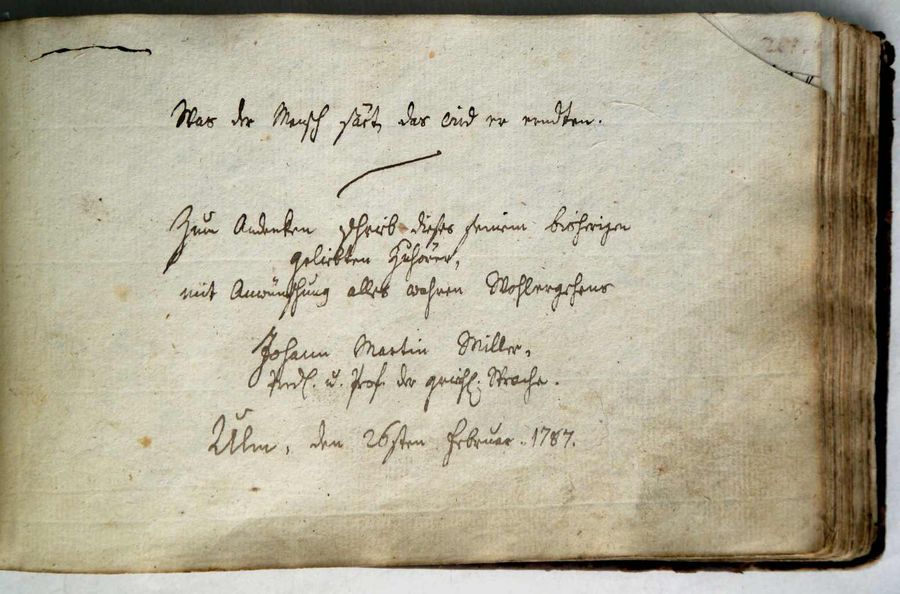 201.
Was der Mensch säet, das wird er erndten.
Zum Andenken schrieb dieses seinem bisherigen
geliebten Zuhörer,
mit Anwünschung alles wahren Wohlergehens
Johann Martin Miller,
Pred. u. Prof. der griech. Sprache.
Ulm, den 26sten Februar. 1787.